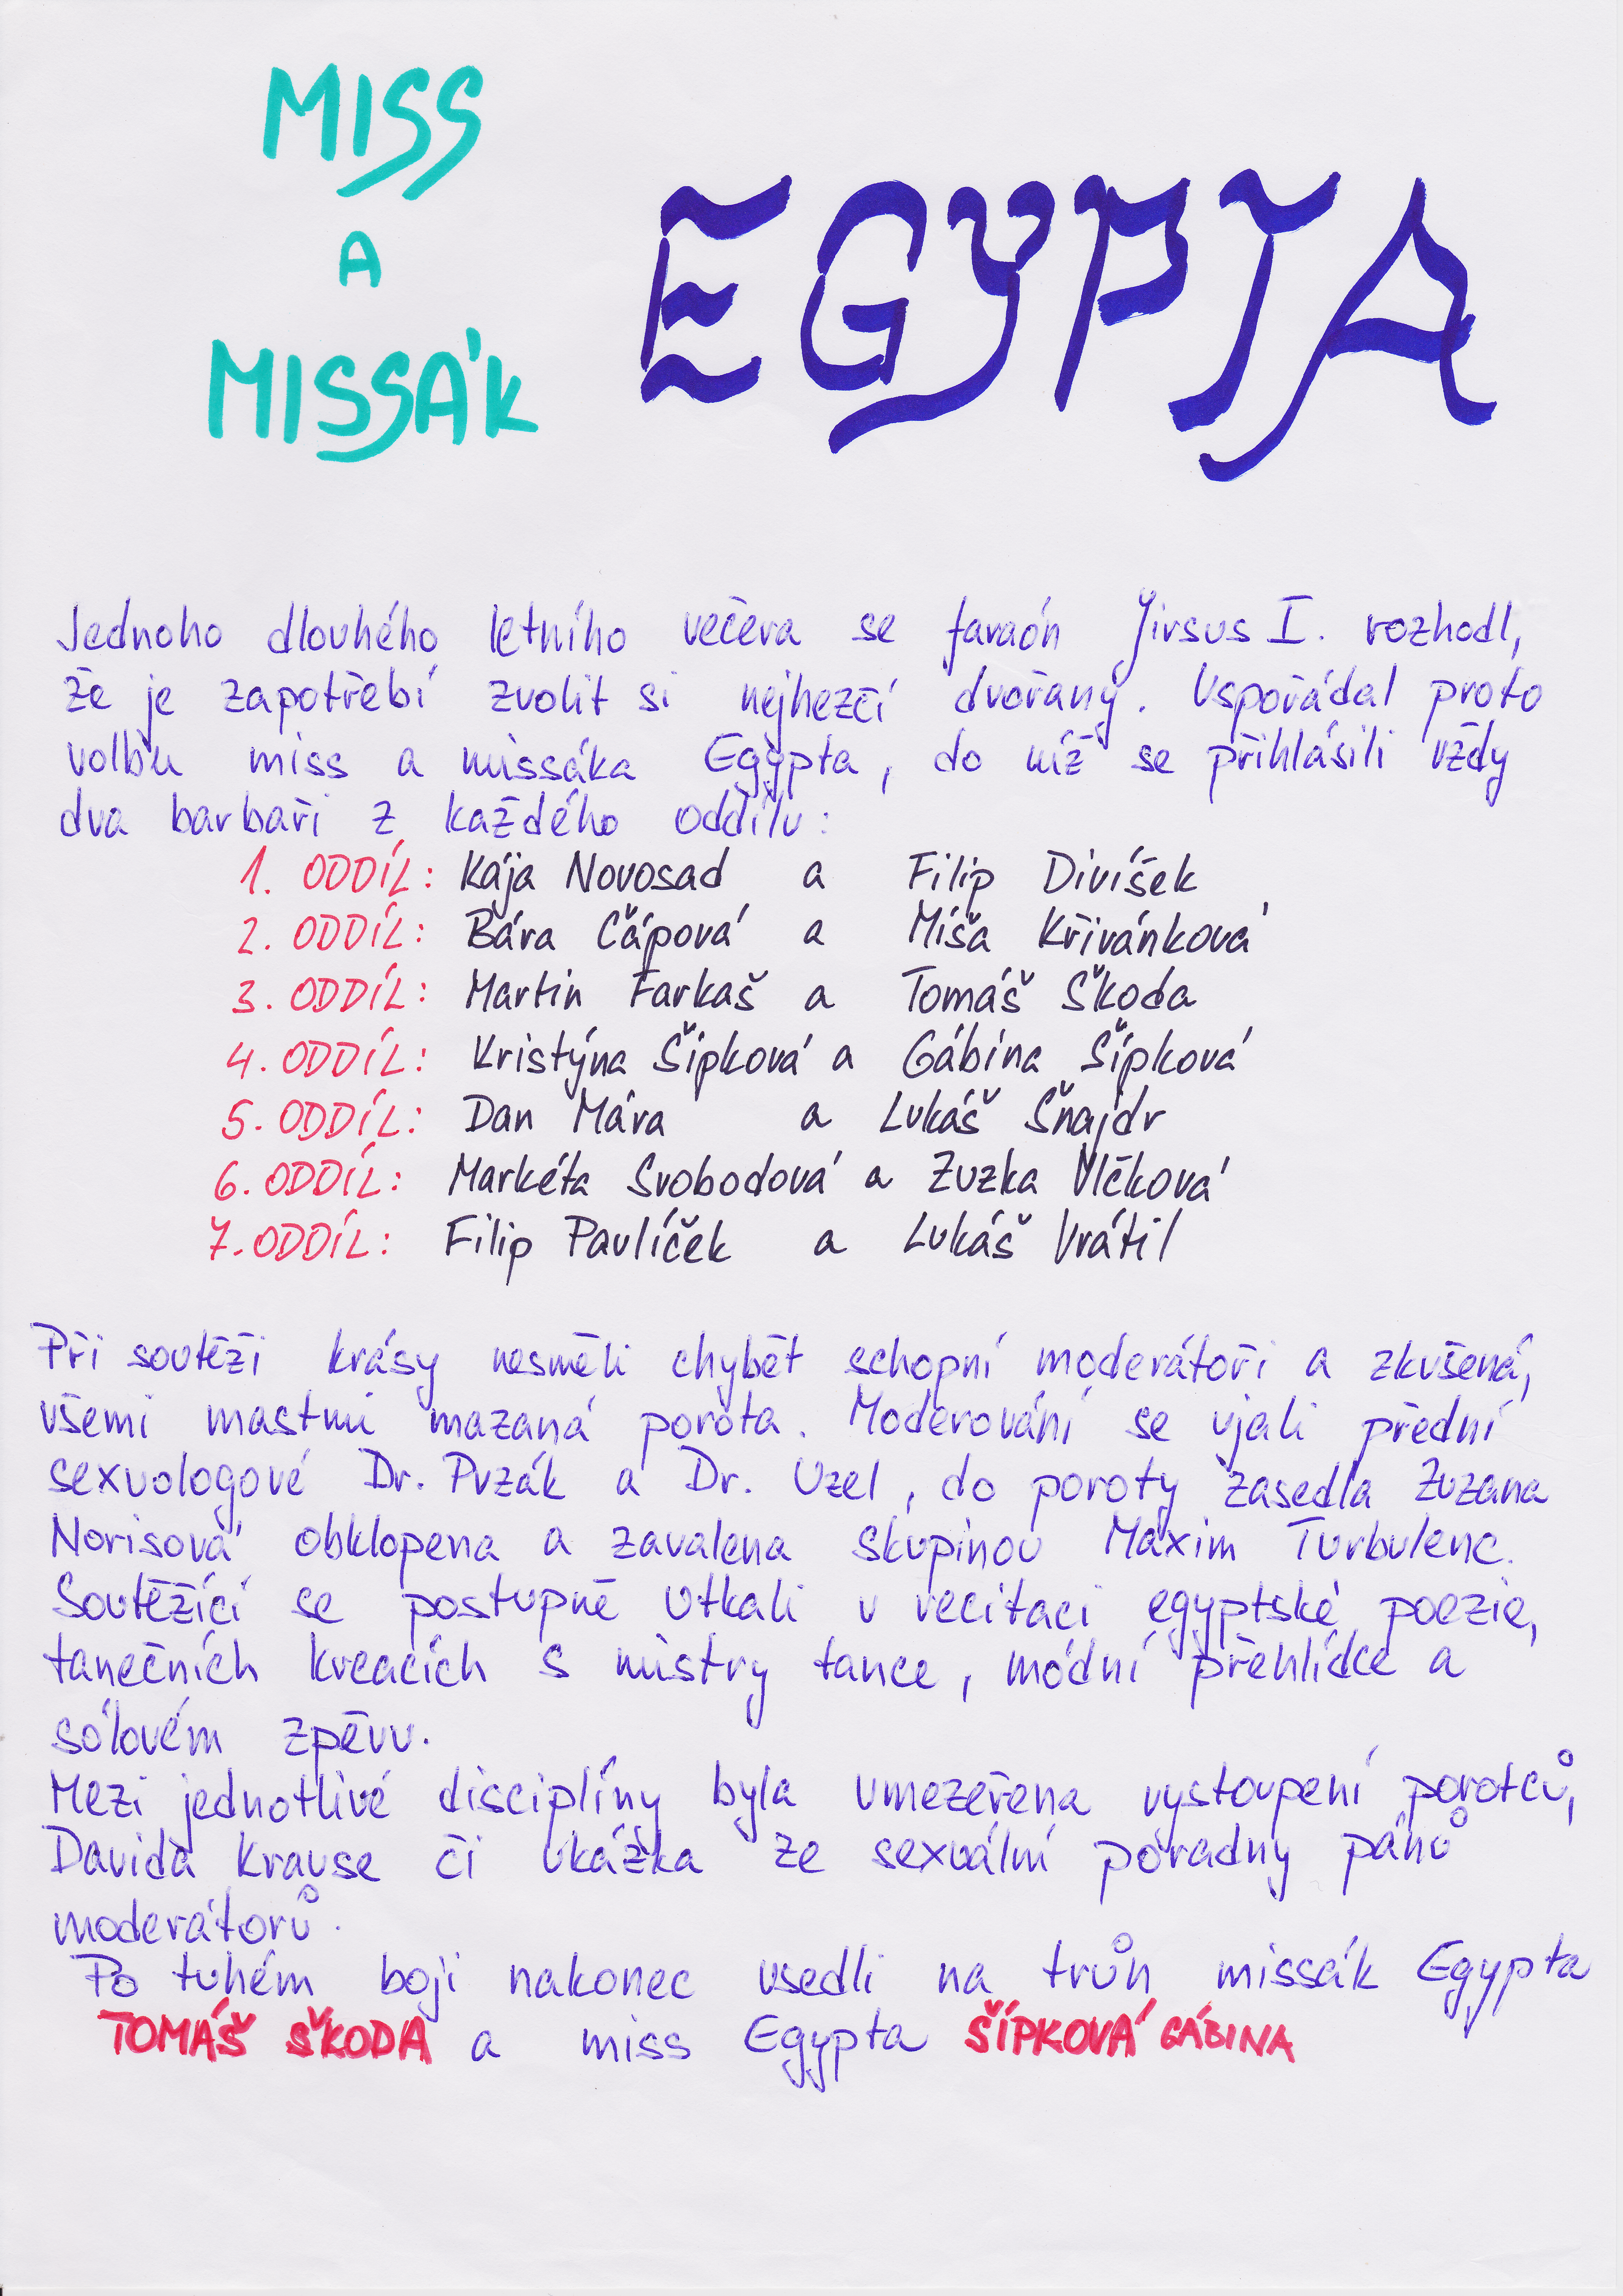 MISS
A
MISSÁK
EGYPTA
Jednoho dlouhého letního večera se faraón Jirsus I. rozhodl,
že je zapotřebí zvolit si nejhezčí dvořany. Uspořádal proto
volbu miss a missáka Egypta, do níž se přihlásili vždy
dva barbaři z každého oddílu:
1. ODDÍL: Kája Novosad a Filip Divíšek
2. ODDÍL: Bára Čápová a Míša Křivánková
3. ODDÍL: Martin Farkaš a Tomáš Škoda
4. ODDÍL: Kristýna Šípková a Gábina Šípková
5. ODDÍL: Dan Mára a Lukáš Šnajdr
6. ODDÍL: Markéta Svobodová a Zuzka Vlčková
7. ODDÍL: Filip Pavlíček a Lukáš Vrátil
Při soutěži krásy nesměli chybět schopní moderátoři a zkušená,
všemi mastmi mazaná porota. Moderování se ujali přední
sexuologové Dr. Pvzák a Dr. Uzel, do poroty zasedla Zuzana
Norisová obklopena a zavalena skupinou Maxim Turbulenc.
Soutěžící se postupně utkali v recitaci egyptské poezie,
tanečních kreacích s mistry tance, módní přehlídce a
sólovém zpěvu.
Mezi jednotlivé disciplíny byla umezeřena vystoupení porotců,
Davida Krause či ukázka ze sexuální poradny pánů
moderátorů.
Po tuhém boji nakonec usedli na trůn missák Egypta
TOMÁŠ ŠKODA a miss Egypta ŠÍPKOVÁ GÁBINA